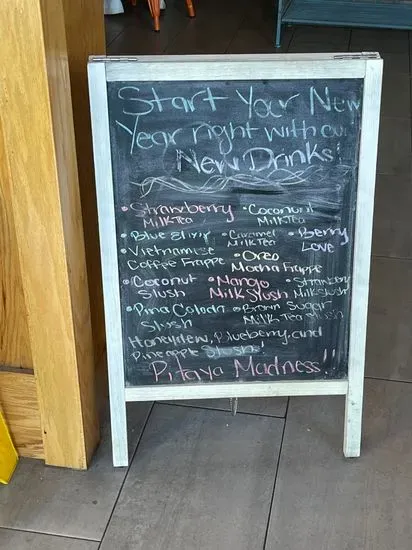 Start Your New
Year right with our
New Drinks!
• Strawberry Milk Tea
• Coconut Milk Tea
• Blue Elixir
• Caramel Milk Tea
• Berry Love
• Vietnamese Coffee Frappe
• Oreo Mocha Frappe
• Coconut Slush
• Mango Milk Slush
• Strawberry Milk Slush
• Pina Colada Slush
• Brown Sugar Milk Tea Slush
Honeydew, Blueberry, and
Pineapple Slushs!
Pitaya Madness!!